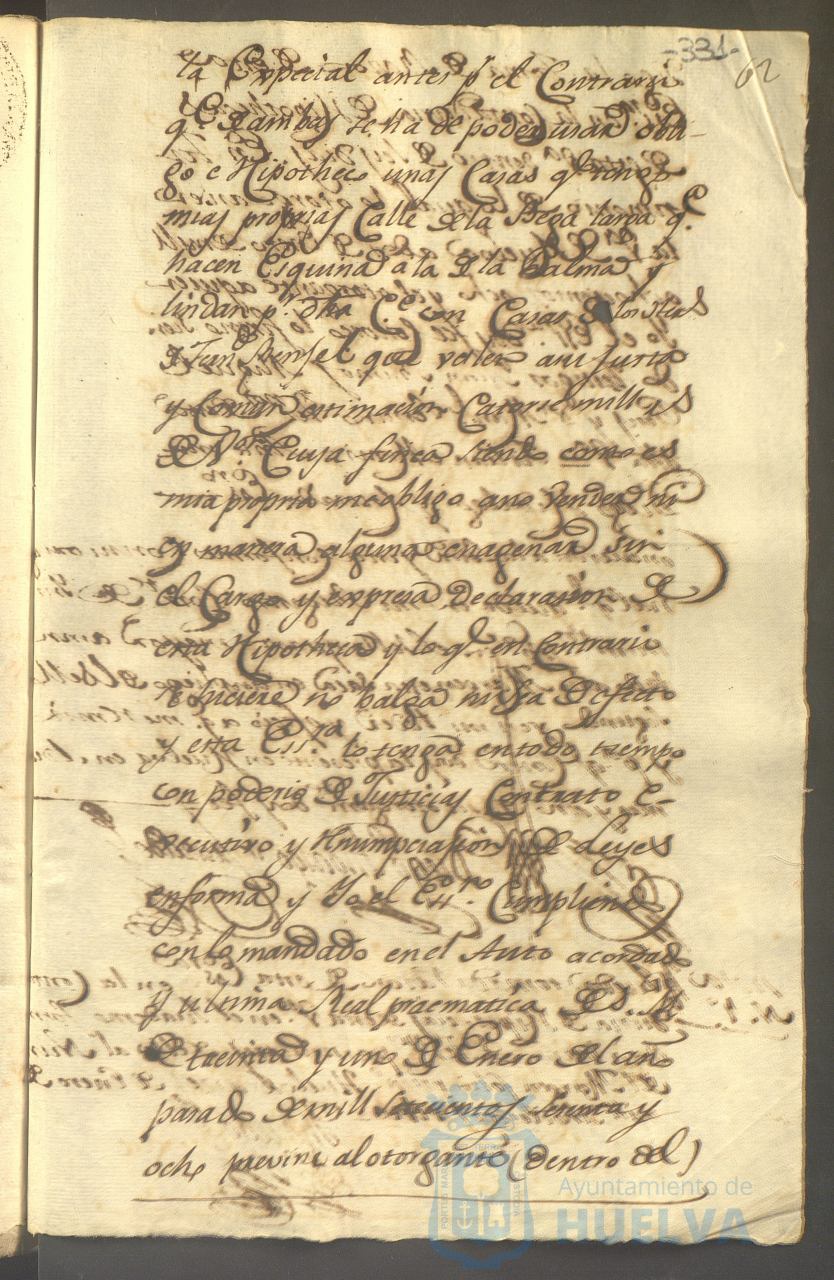 -331-
62
la Especial antes pr. el Contrario
qe. de ambas se ha de poder usar obli-
go e Hipotheco unas Casas qe. tengo
mias propias Calle de la Bega larga qe.
hacen Esquina a la de la Palma y
lindan pr. otra te. con Casas de los
de Juan que valen a su justa
y Comun estimacion Catorse mill rs
de Von. Cuya finca siendo como es
mia propria me obligo a no vender ni
en manera alguna enagenar sin
el Cargo y expresa Declarasion de
esta Hipotheca y lo qe. en Contrario
se hiciere no balga ni sea de efecto
y esta Essra. lo tenga en todo tiempo
con poderio de Justicias Contrato e-
secutivo y renumpciasion de Leyes
en forma y Yo el Essno. Cumpliendo
con lo mandado en el Auto acordado
y ultima Real pracmatica de S. M.
de treinta y uno de Enero del año
pasado de mill setecientos sesenta y
ocho previne al otorgante (dentro del)
Ayuntamiento de
HUELVA